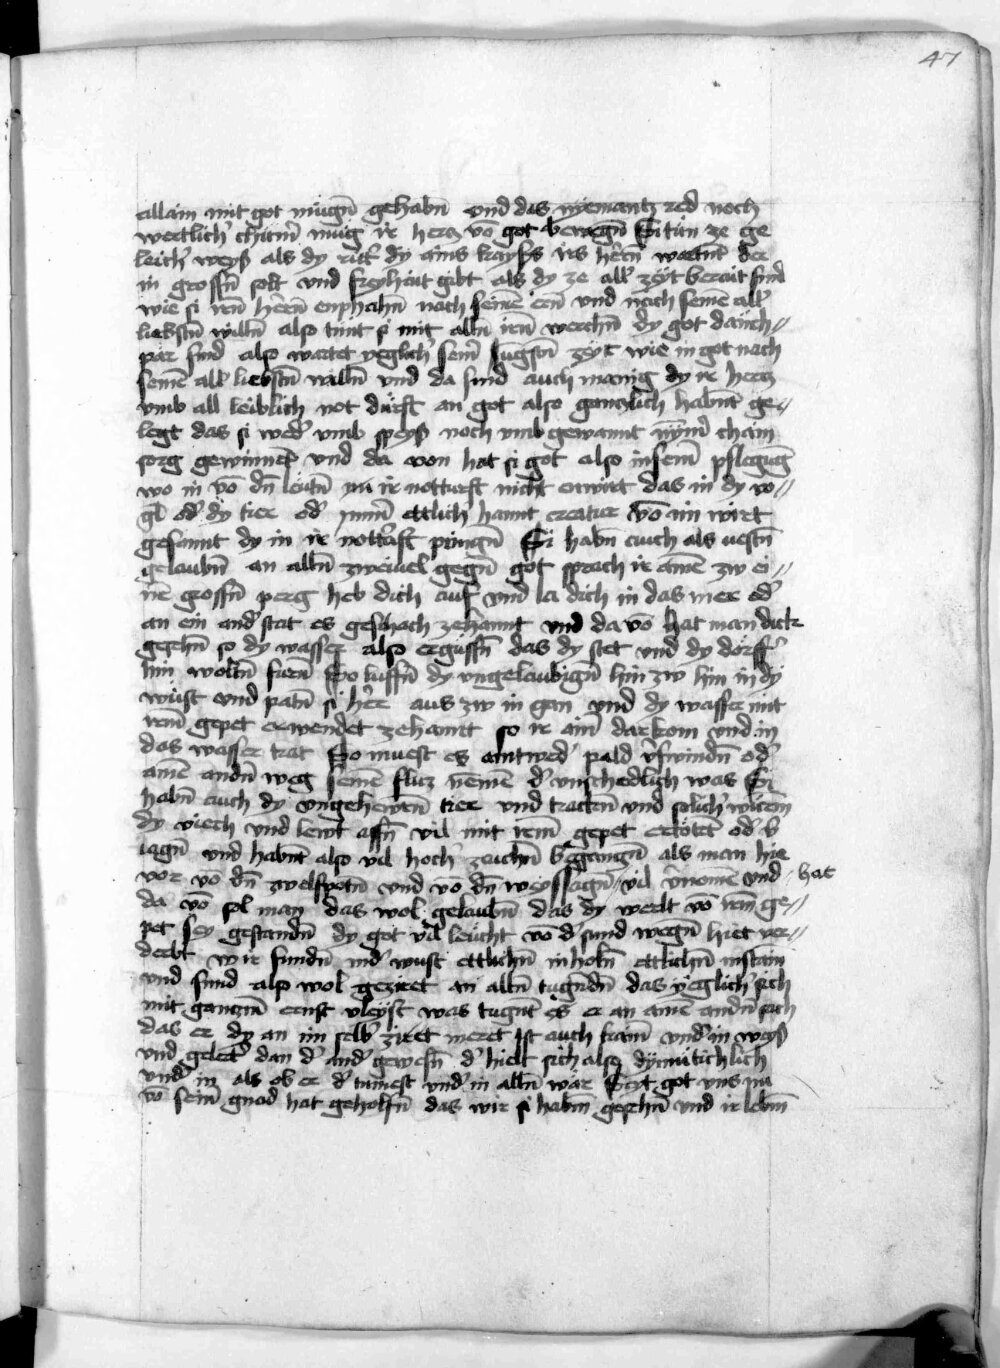 47
allain mit got mügñ gehabñ vnd das nyemantz red noch
wertlich' chum' müg ir hercz võ got bewegñ Si tün ze ge
leich' weyß als dy rütt' dy ains kaysers irs herrñ wartñt der
in grossñ solt vnd freyhait gibt als dy ze all' zeyt berait sind
wie si irñ herrñ enphahñ nach seinē eern vnd nach seinē all'
liebstñ willñ also tünt si mit allñ irñ werchñ dy got danch-//
pär sind also wartet yeglich' sein' iungstñ zeyt wie in got nach
seinē all' liebstñ willñ vnd da sind auch manig dy ir hercz
vmb all leiblich not dürft an got also gantzlich habñt ge-//
legt das si wed' vmb speyß noch vmb gewannt nym' chain
sorg gewinnēt vnd da von hat si got also in sein' pflegūg
wo in võ dñ leutñ nü ir notturft nicht enwirt das in dy vo-//
gl od' dy tier od' ymm' ettlich' hannt creatur võ ain wirt
gesannt dy in ir notturft pringñ Si habñ auch als vestñ
gelaubñ an allñ zweiuel gegñ got sprach ir ainē zw ei-//
nē grossñ perg heb dich auf vnd la dich in das mer od'
an ein and' stat es geschach zehannt vnd da võ hat man dick
gesehñ so dy wasser also ergüssñ das dy stet vnd dy dörff'
hin woltñ fürñ So luffñ dy vngelaubigñ hin zw hin in dy
wüst vnd patñ si her aus zw in gan vnd dy wasser mit
irem gepet erwendet zehantt so ir ain' dar kom vnd in
das wasser trat So muest es antwed' pald v'swindñ od'
ainē andñ weg seinē flucz nemē d' vnschedlich was Si
habñ auch dy vngehewrñ tier vnd trackñ vnd solich' würem
dy viech vnd lewt assñ vil mit irem gepet ertöt̄t od' v'
iagñ vnd habñt also vil hoch' zaichñ begangñ als man hie
vor võ dñ zwelfpotñ vnd võ dñ weyssagñ vil v'nomē vnd · hat
da võ sol man das wol gelaubñ das dy werlt võ irem ge-//
pet sey gestandñ dy got vil leücht võ d' sund wegñ hiet ver-//
derbt wir fundñ in d' wust ettlichñ in holrñ ettlichñ in stain
vnd sind also wol geziret an allñ tugndñ das yeglich' sich
mit ganczm' ernst vleyst was tugnt es er an ainē andñ sich
das er dy an im selb' ziret meret Ist auch kain' vnd' in weys
vnd gelert' dan d' and' gewesñ d' hielt sich also dyemütichlich
vnd' in als ob er d' tummest vnd' in allñ wär Seyt got vns nu
võ sein' gnad hat geholfñ das wir si habñ gesehñ vnd ir lebm